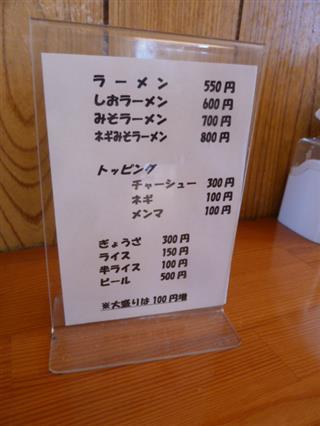 ラーメン 550円
しおラーメン 600円
みそラーメン 700円
ネギみそラーメン 800円
トッピング
チャーシュー 300円
ネギ 100円
メンマ 100円
ぎょうざ 300円
ライス 150円
半ライス 100円
ビール 500円
※大盛りは100円増